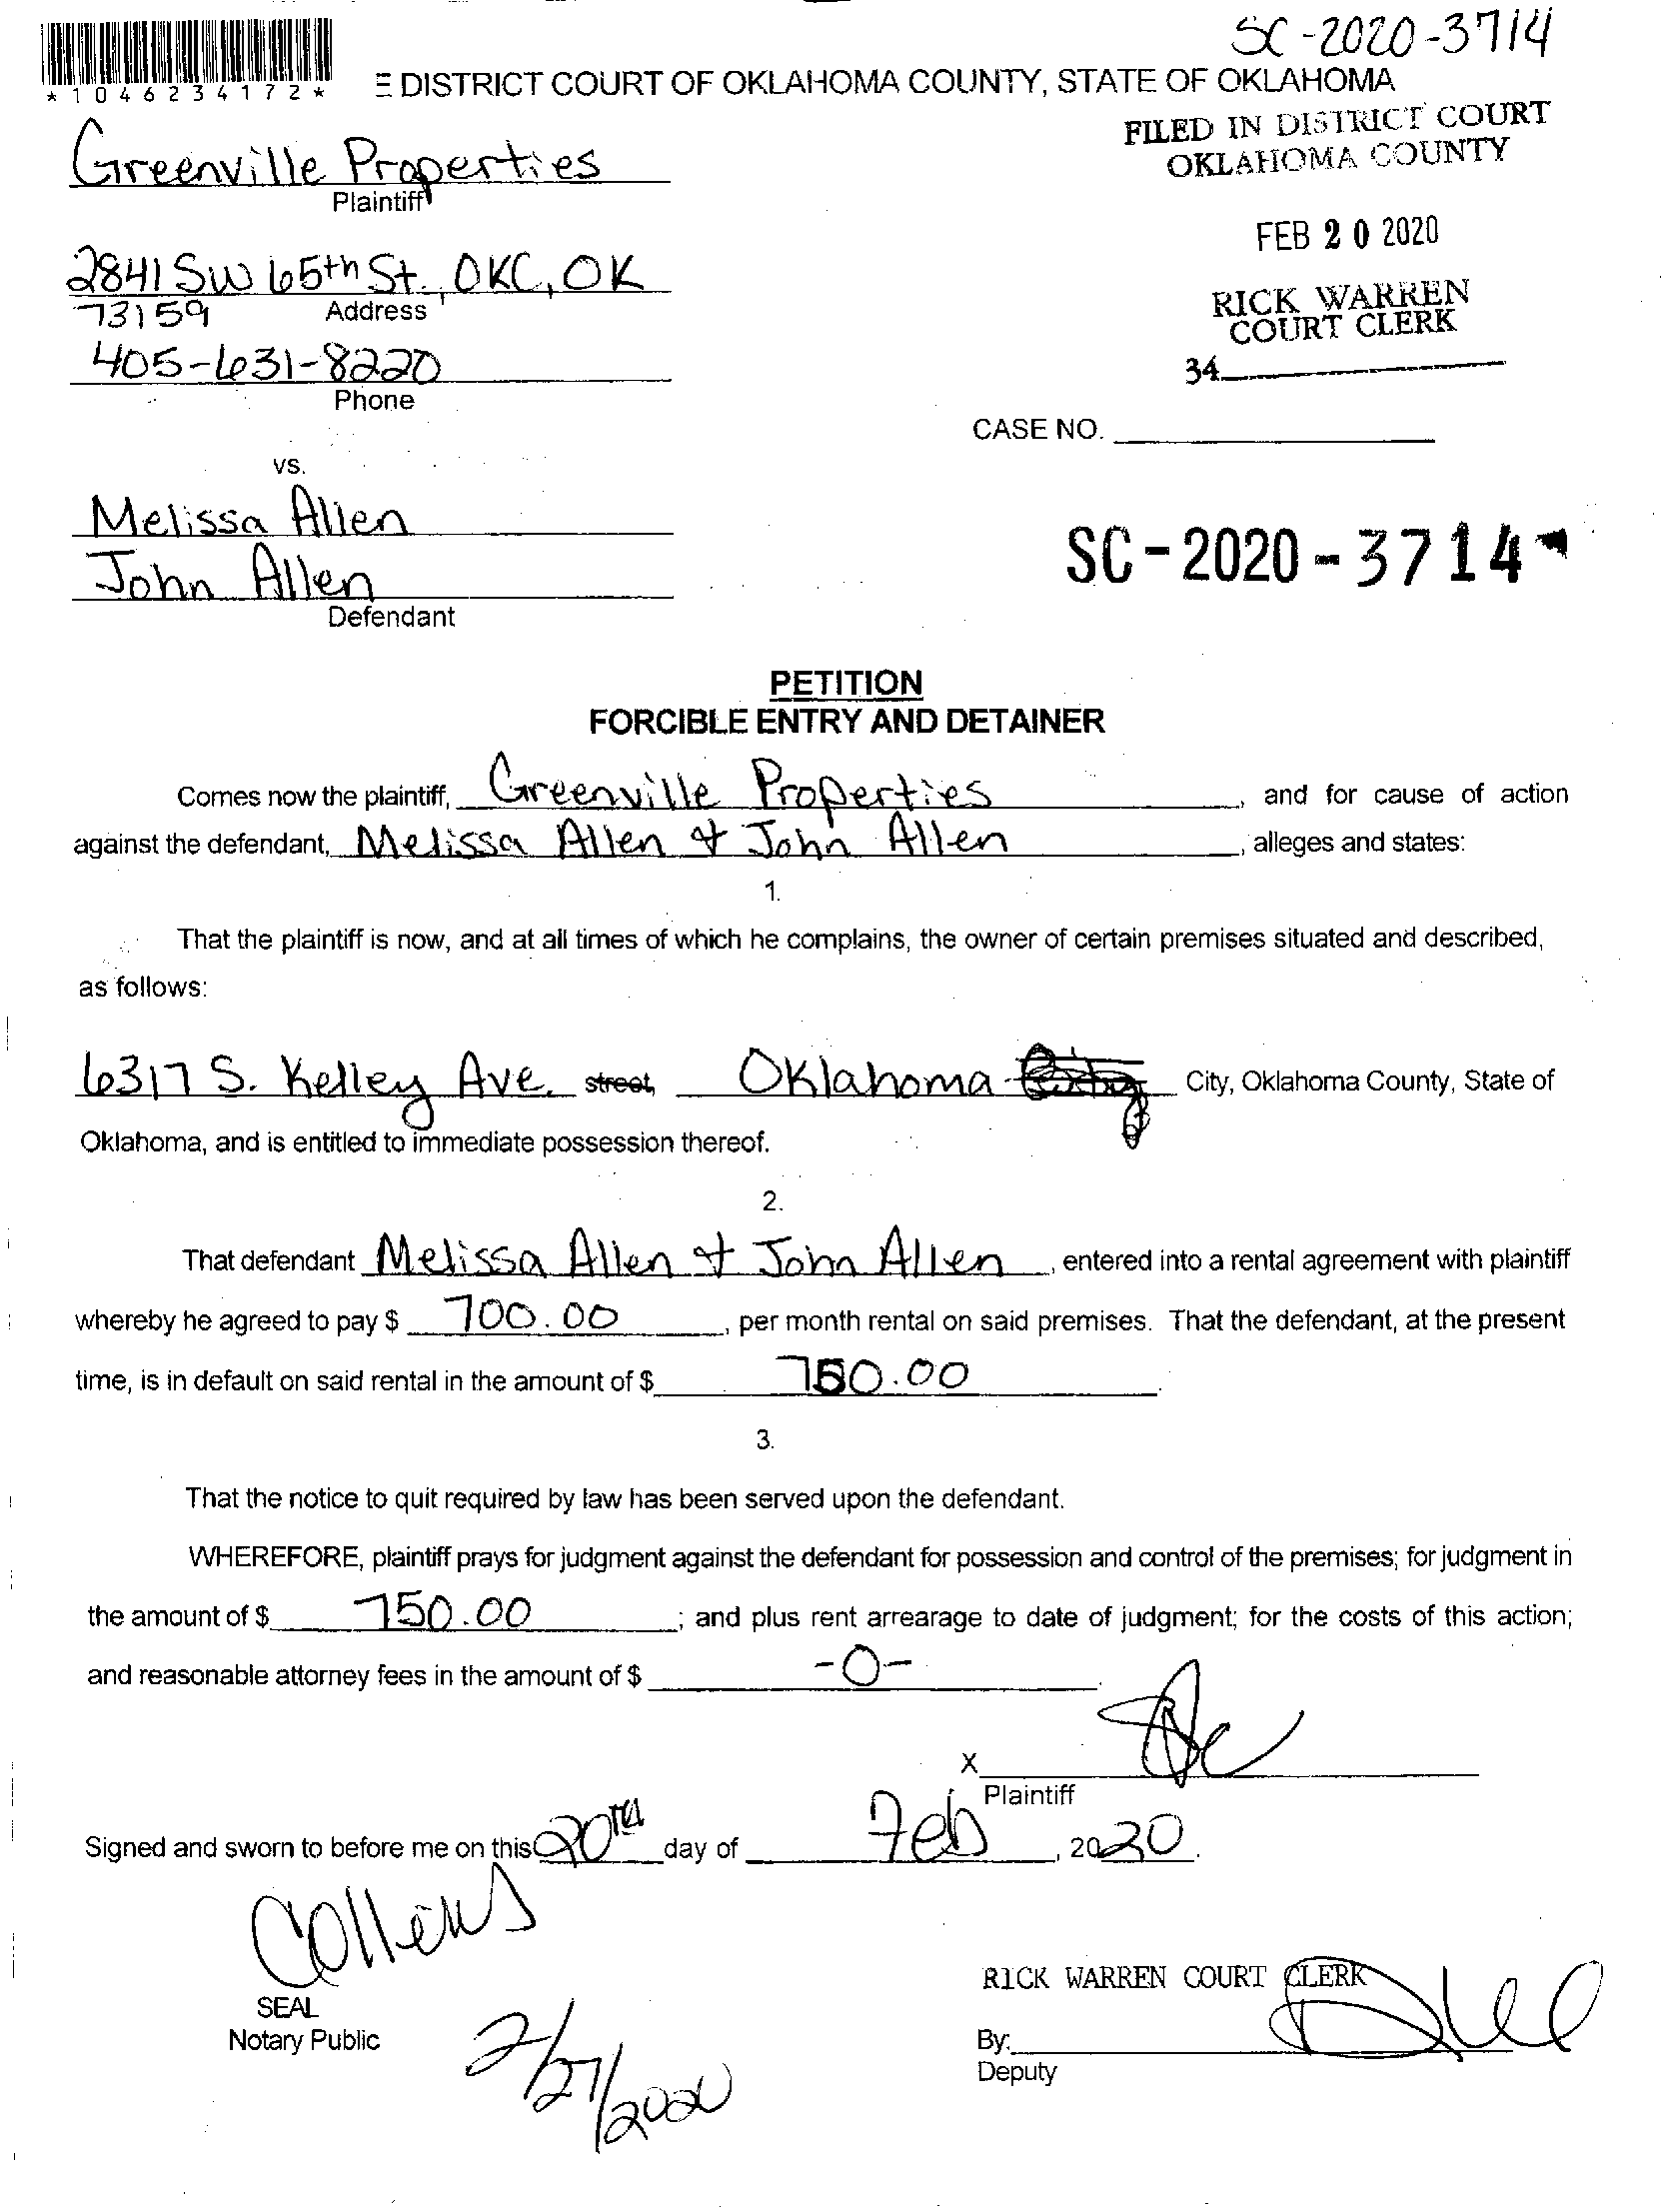 SC-2020-3714
*1046234172*
E DISTRICT COURT OF OKLAHOMA COUNTY, STATE OF OKLAHOMA
FILED IN DISTRICT COURT
OKLAHOMA COUNTY
Greenville Properties
Plaintiff
FEB 20 2020
2841 SW 65th St., OKC, OK
73159 Address
RICK WARREN
COURT CLERK
405-631-8220
34
Phone
CASE NO.
vs.
Melissa Allen
John Allen
SC-2020-3714
Defendant
PETITION
FORCIBLE ENTRY AND DETAINER
Comes now the plaintiff, Greenville Properties, and for cause of action
against the defendant, Melissa Allen & John Allen, alleges and states:
1.
That the plaintiff is now, and at all times of which he complains, the owner of certain premises situated and described,
as follows:
6317 S. Kelley Ave. street, Oklahoma City, Oklahoma County, State of
Oklahoma, and is entitled to immediate possession thereof.
2.
That defendant Melissa Allen & John Allen, entered into a rental agreement with plaintiff
whereby he agreed to pay $ 700.00, per month rental on said premises. That the defendant, at the present
time, is in default on said rental in the amount of $ 750.00.
3.
That the notice to quit required by law has been served upon the defendant.
WHEREFORE, plaintiff prays for judgment against the defendant for possession and control of the premises; for judgment in
the amount of $ 750.00; and plus rent arrearage to date of judgment; for the costs of this action;
and reasonable attorney fees in the amount of $ -0-.
X
Plaintiff
Signed and sworn to before me on this 20TH day of Feb, 2020.
Collens
RICK WARREN COURT CLERK
SEAL
Notary Public
By:
Deputy
2/27/2020